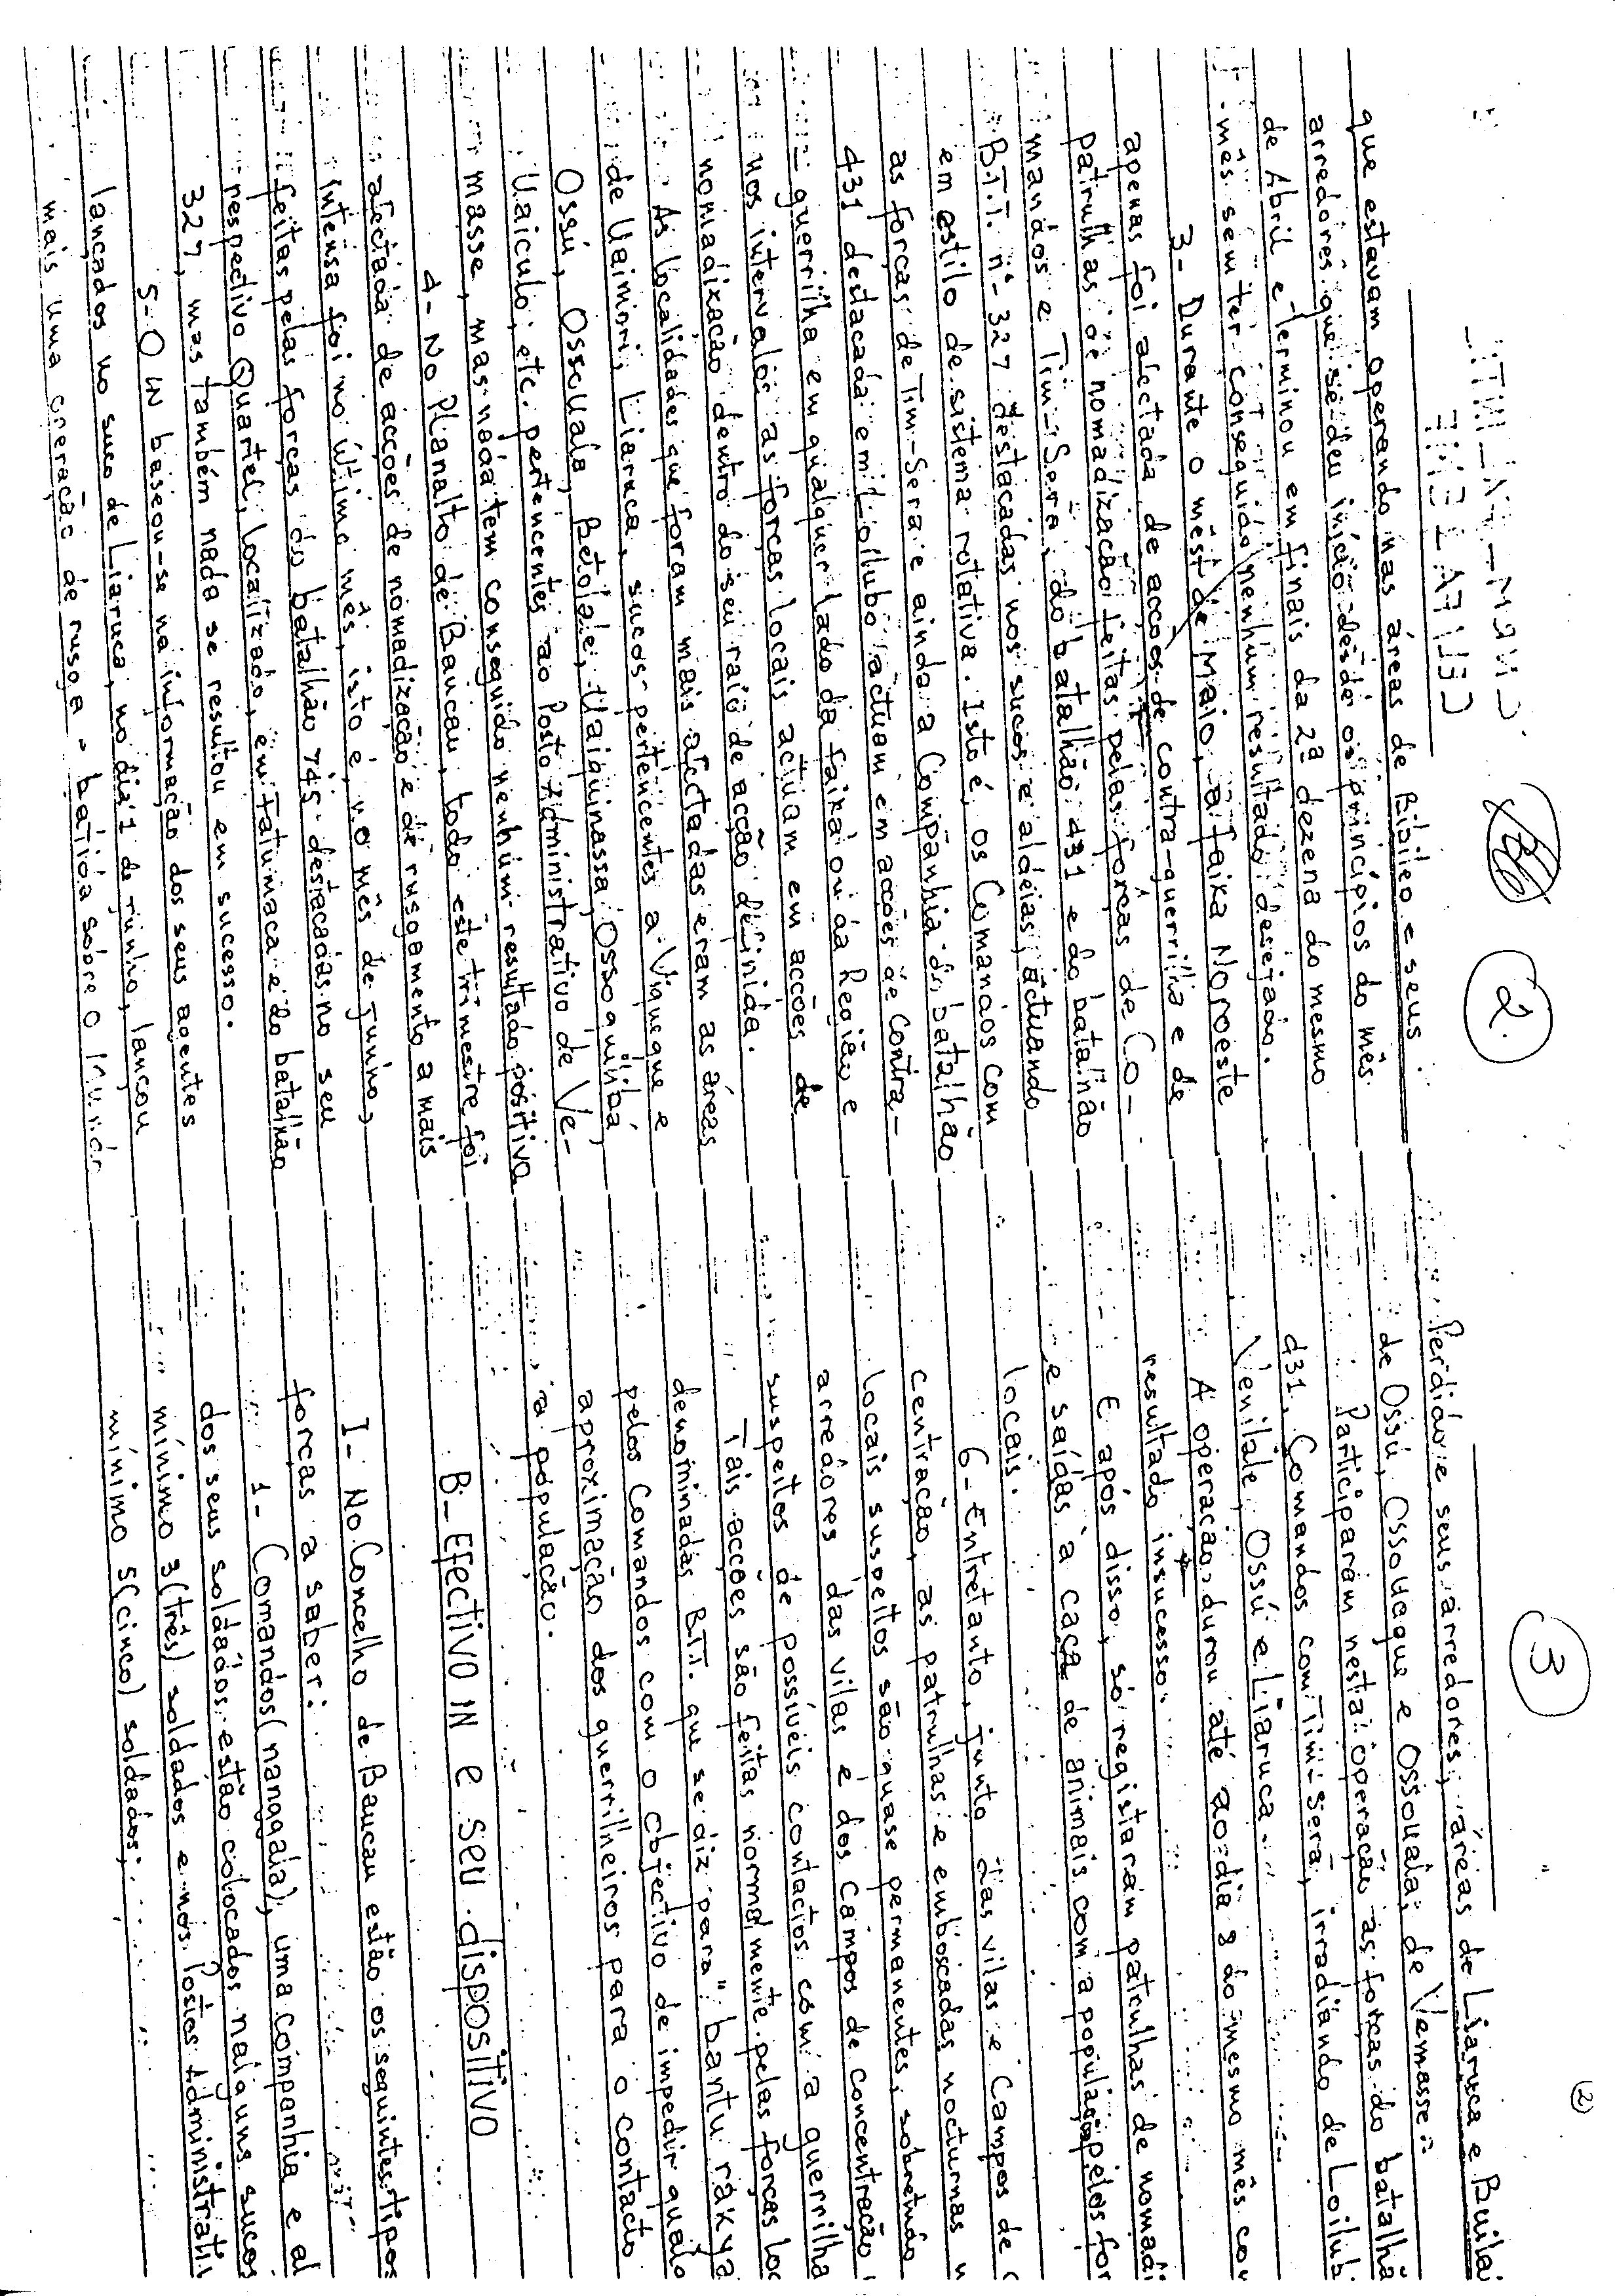 2.
que estavam operando nas áreas de Bibileo e seus
arredores que se deu início desde os princípios do mês
de Abril e terminou em finais da 2ª dezena do mesmo
mês sem ter conseguido nenhum resultado desejado.
3- Durante o mês de Maio, a faixa Noroeste
apenas foi afectada de acções de contra-guerrilha e de
patrulhas de nomadização feitas pelas forças de Co-
mandos e Tim-Sera, do batalhão 431 e do batalhão
B.T.T. nº 327 destacadas nos sucos e aldeias, actuando
em estilo de sistema rotativa. Isto é, os Comandos com
as forças de Tim-Sera e ainda a Companhia do batalhão
431 destacada em Loilubo actuam em acções de contra-
guerrilha em qualquer lado da faixa ou da Região e
nos intervalos as forças locais actuam em acções de
nomadização dentro do seu raio de acção definida.
As localidades que foram mais afectadas eram as áreas
de Uaimori, Liaruca, sucos pertencentes a Viqueque e
Ossú, Ossouala, Betolale, Uaiquinassa, Ossoquiliba,
Uaiculo, etc. pertencentes ao Posto Administrativo de Ve-
masse, mas nada tem conseguido nenhum resultado positivo
4- No Planalto de Baucau, todo este trimestre foi
afectada de acções de nomadização e de rusgamento a mais
intensa foi no último mês, isto é, no mês de Junho,
feitas pelas forças do batalhão 745 destacadas no seu
respectivo Quartel, localizado, em Fatumaca e do batalhão
327, mas também nada se resultou em sucesso.
5- O IN baseou-se na informação dos seus agentes
lançados no suco de Liaruca, no dia 1 de Junho, lançou
mais uma operação de rusga - batida sobre o Mundo
3
Perdido e seus arredores, áreas de Liaruca e Builai
de Ossú, Ossouaque e Ossouala, de Vemasse.
Participaram nesta operação as forças do batalhã
431, Comandos com Tim-Sera, irradiando de Loilub
Venilale, Ossú e Liaruca.
A operação durou até ao dia 8 do mesmo mês co
resultado insucesso.
E após disso, só registaram patrulhas de nomadi
e saídas à caça de animais com a população pelos for
locais.
6- Entretanto, junto das vilas e Campos de C
centração, as patrulhas e emboscadas nocturnas n
locais suspeitos são quase permanentes, sobretudo
arredores das vilas e dos Campos de concentração
suspeitos de possíveis contactos com a guerrilha
Tais acções são feitas normalmente pelas forças loc
denominadas B.T.T. que se diz para "bantu rakya
pelos Comandos com o objectivo de impedir qualq
aproximação dos guerrilheiros para o contacto
à população.
B- Efectivo IN e seu dispositivo
I- No Concelho de Baucau estão os seguintes tipos
forças a saber:
1- Comandos (nanggala), uma companhia e al
dos seus soldados estão colocados naiguns sucos
mínimo 3 (três) soldados e nos Postos Administrati
mínimo 5 (cinco) soldados;
2